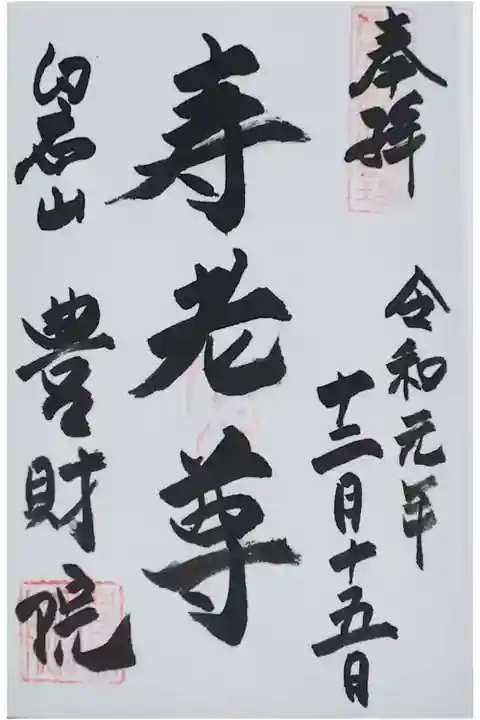 奉拝
令和元年
十二月十五日
寿老尊
白石山 豊財院